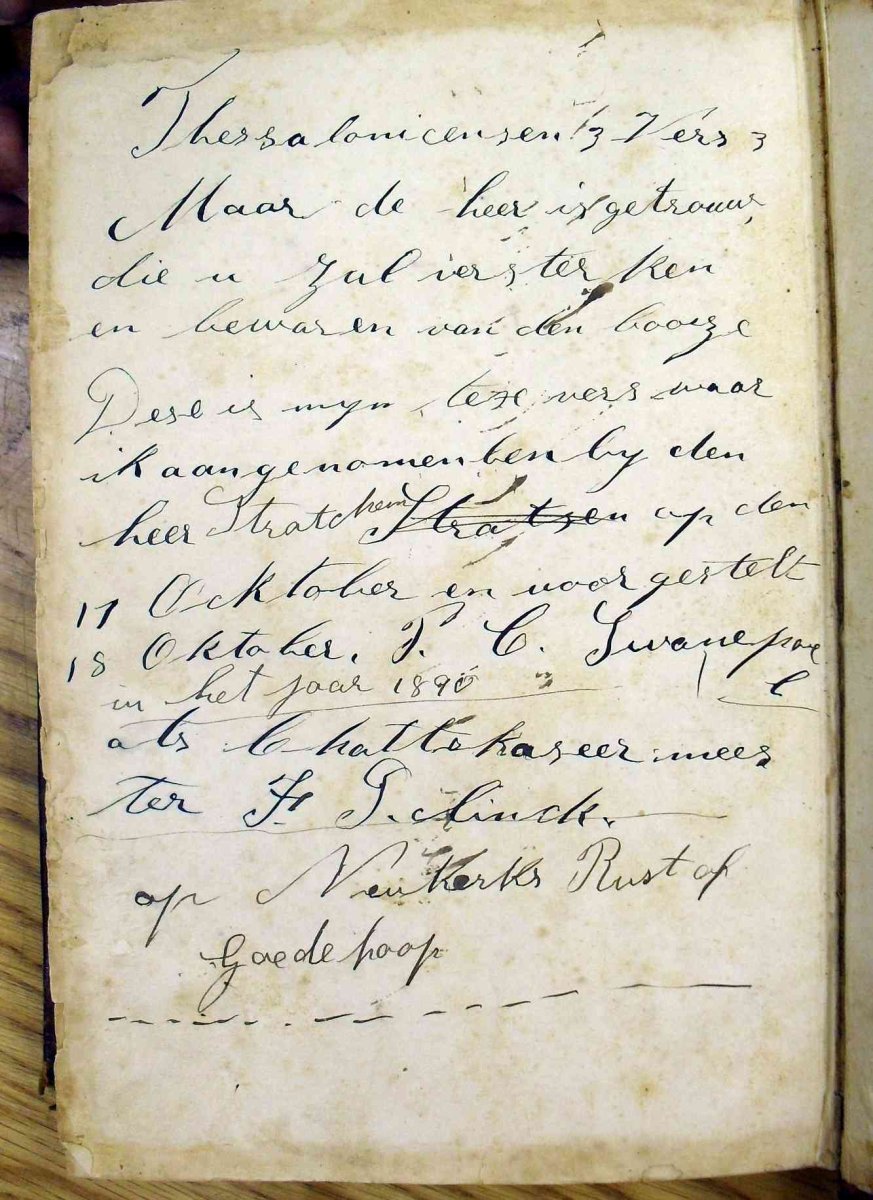 Thessalonicensen 3 Vers 3
Maar de heer is getrouw
die u zal versterken
en bewaren van den booze
Dese is myn teze vers waar
ik aangenomen ben by den
heer Stratchem Stratsen op den
17 Ocktober en voorgestelt
18 Oktober. P. C. Swanepoel
in het jaar 1890
als Chattekaseer mees
ter F. P. clinck.
op Nieukerks Rust of
Goede hoop